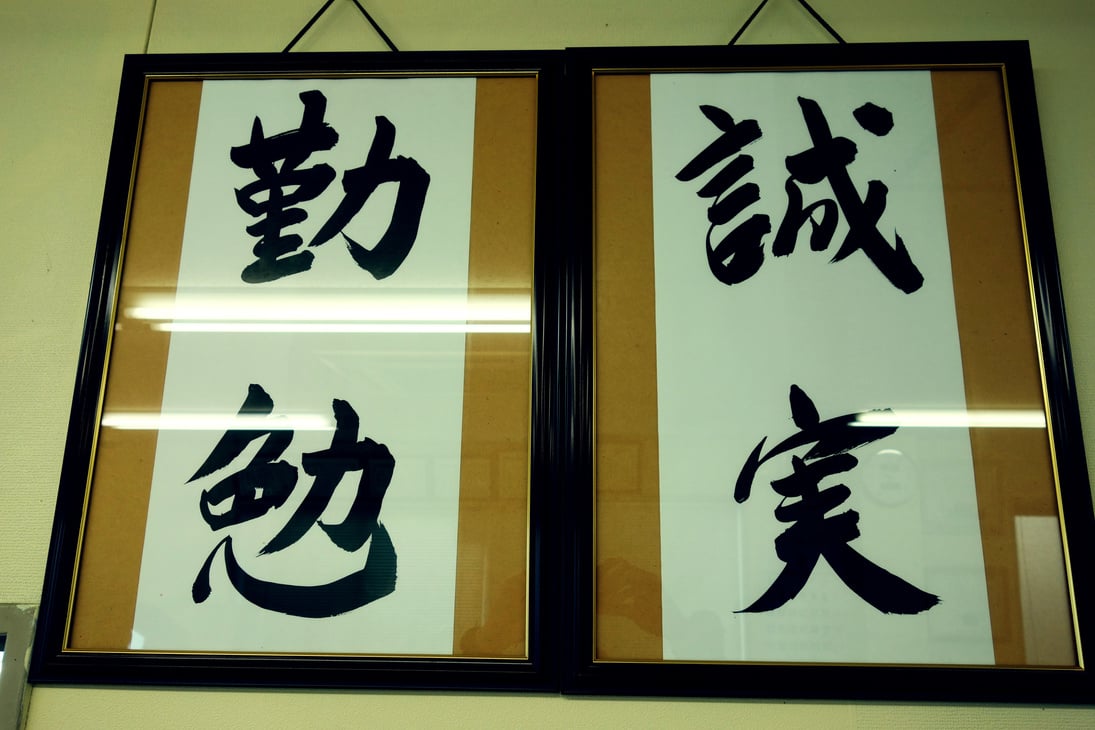 誠実
勤勉